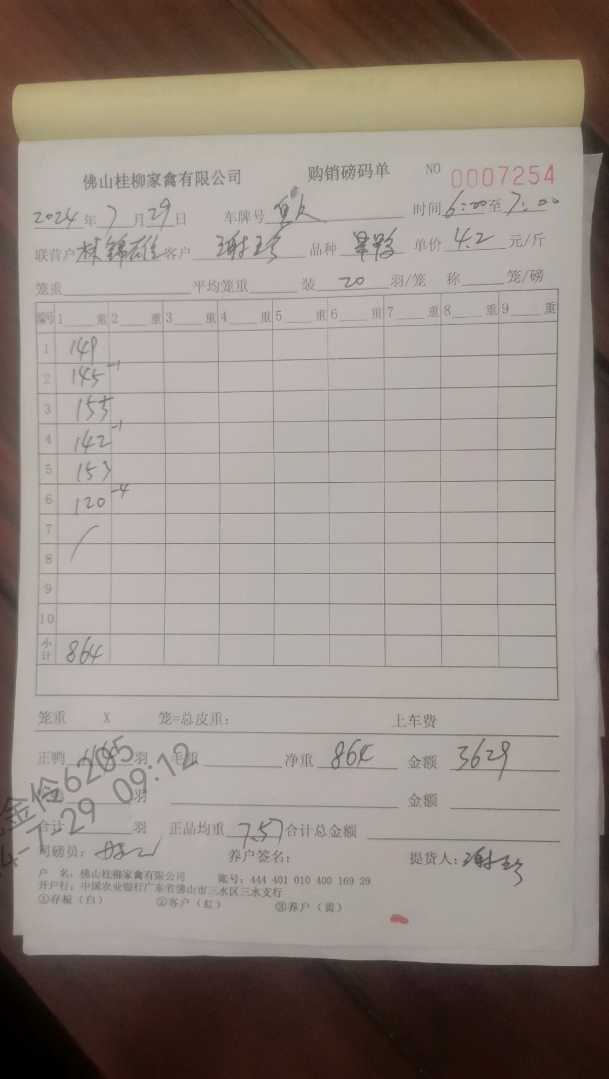 佛山桂柳家禽有限公司 购销磅码单 NO 0007254
2024年7月29日 车牌号 时间6:00至7:00
联营户 林锦雄 客户 谢珍 品种 单价 4.2 元/斤
笼重 平均笼重 装 20 羽/笼 称 笼/磅
编号 1 重 2 重 3 重 4 重 5 重 6 重 7 重 8 重 9 重
1 149
2 145 -1
3 155
4 142 -1
5 153
6 120 -4
7
8
9
10
小计 864
笼重 X 笼=总皮重: 上车费
正鸭 羽 毛重 净重 864 金额 3629
羽 金额
合计 羽 正品均重 7.57 合计总金额
司磅员: 养户签名: 提货人: 谢珍
户 名: 佛山桂柳家禽有限公司 账号: 444 401 010 400 169 29
开户行: 中国农业银行广东省佛山市三水区三水支行
①存根(白) ②客户(红) ③养户(黄)
金伶6205
4-7-29 09:12